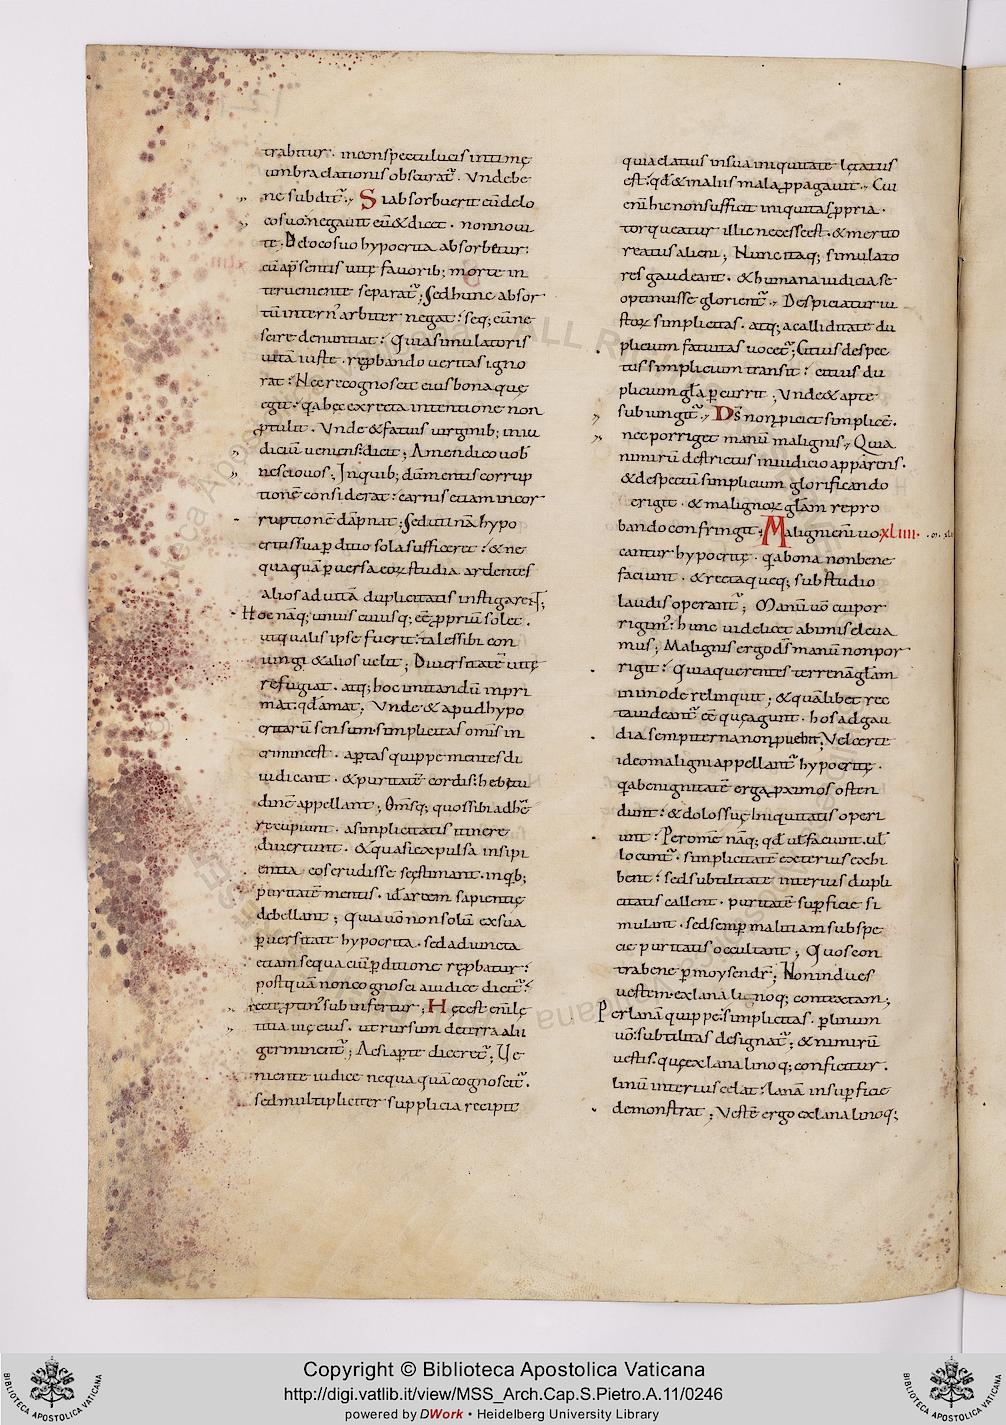 trabitur · inconspectu lucis intimę
umbra elationis obscurat᷑ . Vnde be
ne subdit᷑ . Si absorbuerit eū de lo
co suo · negauit eū & dicet · non noui
te · De loco suo hypocrita absorbetur :
cū ap̄sentis uitę fauorib; morte in
terueniente separat᷑ ; Sed hunc absor
tū intern᷒ arbiter negat : seq; eū ne
scire denuntiat : Quia simulatoris
uitā iuste · repbando ueritas igno
rat : Nec recognoscit eius bona quę
egit : q̄a hęc ex recta intentione non
ꝓtulit . Vnde & fatuis uirginib; in iu
diciū ueniens : dicit ; Amen dico uob̄
nescio uos ; In quib; dū mentis corrup
tionē considerat : carnis etiam incor
ruptionē dāpnat ; Sed utinā hypo
critis sua ꝑditio sola sufficeret : & ne
quaquā ꝑuersa eoꝝ studia ardentes
alios ad uitā duplicitatis instigarent ;
Hoc nāq; unius cuiusq; eē ꝓpriū solet .
ut qualis ipse fuerit : tales sibi con
iungi & alios uelit ; Diuersitatē uitę
refugiat . atq; hoc imitandū inpri
mat : qđ amat ; Vnde & apud hypo
critarū sensum · simplicitas omīs in
crimine est . aꝑtas quippe mentes di
iudicant · & puritatē cordis : hebetu
dinē appellant ; Omsq; quos sibi adhęrē
re cupiunt . a simplicitatis itinere
diuertunt . & quasi expulsa insipi
entia eos erudisse se ęstimant . in qb;
puritatē mentis . id arcem sapientię
debellant ; Quia uō non solū ex sua
ꝑuersitate hypocrita . sed adiuncta
etiam sequaciū ꝑditione repbatur :
postquā non cognosci a iudice dicit᷑ :
recte ꝓtin᷒ subinfertur ; Hęc est enī lę
titia uię eius . ut rursum de terra alii
germinent᷑ ; Ac si aꝑte diceret᷑ ; Ve
niente iudice nequaquā cognoscit᷑ .
sed multipliciter supplicia recipit
quia elatius in sua iniquitate lętatus
est : qđ & malus mala ꝓpagauit . Cui
enī hic non sufficit iniquitas ꝓpria ·
torqueatur illic necesse est · & merito
reatus alieni ; Nunc itaq; simulato
res gaudeant . & humana iudicia se
optinuisse glorient᷑ . Despiciatur iu
stoꝝ simplicitas . atq; a calliditate du
plicium fatuitas uocet᷑ ; Citius despec
tus simplicium transit : citius du
plicium gl̄a ꝑcurrit ; Vnde & apte
subiungit᷑ . D̄s non ꝓiciet simplicē .
nec porriget manū malignis . Quia
nimirū districtus in iudicio apparens .
& despectū simplicium glorificando
erigit · & malignoꝝ gl̄am repro
bando confringit ; Maligni enī uo
XLIIII ·
cantur hypocritę . q̄a bona non bene
faciunt . & recta queq; sub studio
laudis operant᷑ ; Manū uō cui por
rigim᷒ : hunc uidelicet ab imis eleua
mus ; Malignis ergo d̄s manū non por
rigit : Quia querentes terrenā gl̄am
in imo derelinquit . & quālibet rec
ta uideant᷑ eē quę agunt . hos ad gau
dia sempiterna non ꝓuehit ; Vel certe
ideo maligni appellant᷑ hypocritę .
q̄a benignitatē erga ꝓximos osten
dunt : & dolos suę iniquitatis operi
unt : Per omē nāq; qđ uł faciunt . uł
locunt᷑ . simplicitatē exterius exhi
bent : sed subtilitate interius dupli
citatis callent . puritatē suꝑficie si
mulant . sed semꝑ malitiam sub spe
cie puritatis occultant ; Quos con
tra bene ꝑ moysen dr̄ ; Non indues
uestem . ex lana linoq; contextam ;
Per lanā quippe : simplicitas . ꝑ linum
uō : subtilitas designat᷑ ; & nimirū
uestis . quę ex lana linoq; conficitur .
linū interius celat : lanā in suꝑficie
demonstrat ; Vestē ergo ex lana linoq;
Copyright © Biblioteca Apostolica Vaticana
http://digi.vatlib.it/view/MSS_Arch.Cap.S.Pietro.A.11/0246
powered by DWork • Heidelberg University Library
BIBLIOTECA APOSTOLICA VATICANA
BIBLIOTECA APOSTOLICA VATICANA